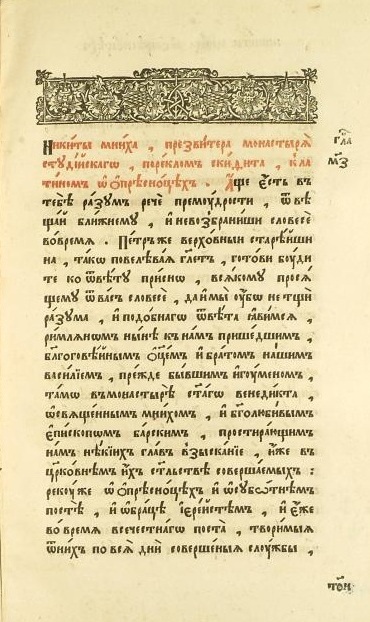 Никиты мниха , презвитера монастырѧ̀
стꙋді́йскагѡ , порекломъ скифи́та , кла
ти́номъ ѡ҆ ѡ҆прѣсно́цѣхъ . А҆́ще є҆́сть въ
тебѣ̀ ра́зꙋмъ речѐ премꙋ́дрости , ѿвѣ
ща́й бли́жнемꙋ , и҆ невозбрани́ши словесѐ
во́время . Пе́тръ же верхо́вныи старѣ́иши
на , та́кѡ повелѣва́ѧ гл҃етъ , гото́ви бꙋ́ди
те ко ѿвѣ́тꙋ при́снѡ , всѧ́комꙋ просѧ́
щемꙋ ѿ ва́съ словесѐ , да и҆ мы̀ ᲂу҆́бѡ не тщѝ
ра́зꙋма , и҆ подо́бнагѡ ѿвѣ́та ꙗ҆ви́мсѧ ,
ри́млѧнѡмъ ны́нѣ къ на́мъ прише́дшимъ ,
благоговѣ́йнымъ ѻ҆ц҃е́мъ и҆ бра́томъ на́шимъ
васи́лиемъ , пре́жде бы́вшимъ и҆гꙋ́меномъ ,
та́мѡ въ монастырѣ̀ ст҃а́гѡ венеди́кта ,
ѡ҆сщ҃е́ннымъ мни́хомъ , и҆ бг҃олюби́вымъ
є҆пи́скопѡмъ ба́рскимъ , простира́ющимъ
на́мъ нѣ́кїихъ гла́въ взыска́нїе , ꙗ҆̀же въ
цр҃ко́внѣмъ и҆́хъ ст҃льствѣ соверша́емыхъ :
рекꙋ́ же ѡ҆ ѡ҆прѣсно́цѣхъ и҆ ѡ҆ сꙋббѡ́тнѣмъ
постѣ̀ , и҆ ѡ҆ бра́цѣ і҆ере́йстѣмъ , и҆ є҆́же
во́ время всече́стнагѡ поста̀ , твори́мыѧ
ѿ ни́хъ по всѧ̀ дни̑ соверше́ныѧ слꙋ́жбы ,
гла
м҃з
то́и